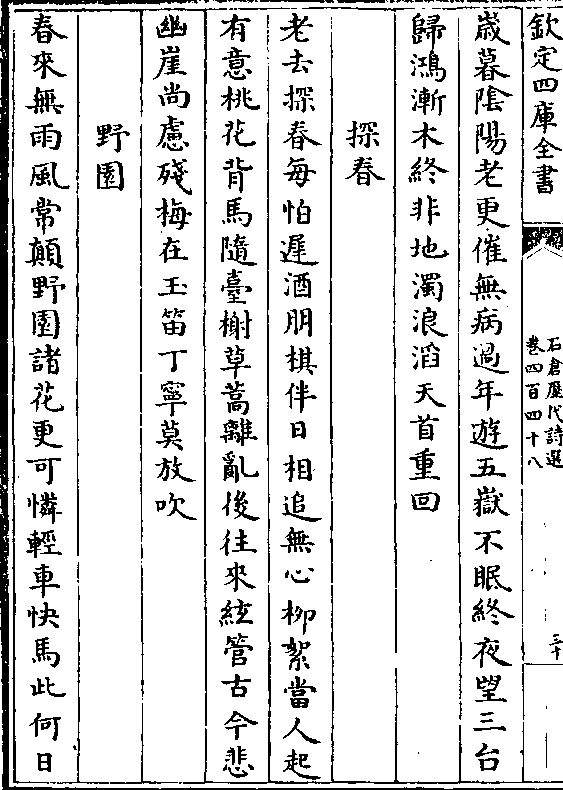 欽定四庫全書
石倉歷代詩選
卷四百四十八
三十
歲暮陰陽老更催無病過年遊五嶽不眠終夜望三台
歸鴻漸木終非地濁浪滔天首重回
探春
老去探春每怕遲酒朋棋伴日相追無心柳絮當人起
有意桃花背馬隨臺榭草蒿離亂後往來絃管古今悲
幽崖尚慮殘梅在玉笛丁寧莫放吹
野園
春來無雨風常顛野園諸花更可憐輕車快馬此何日